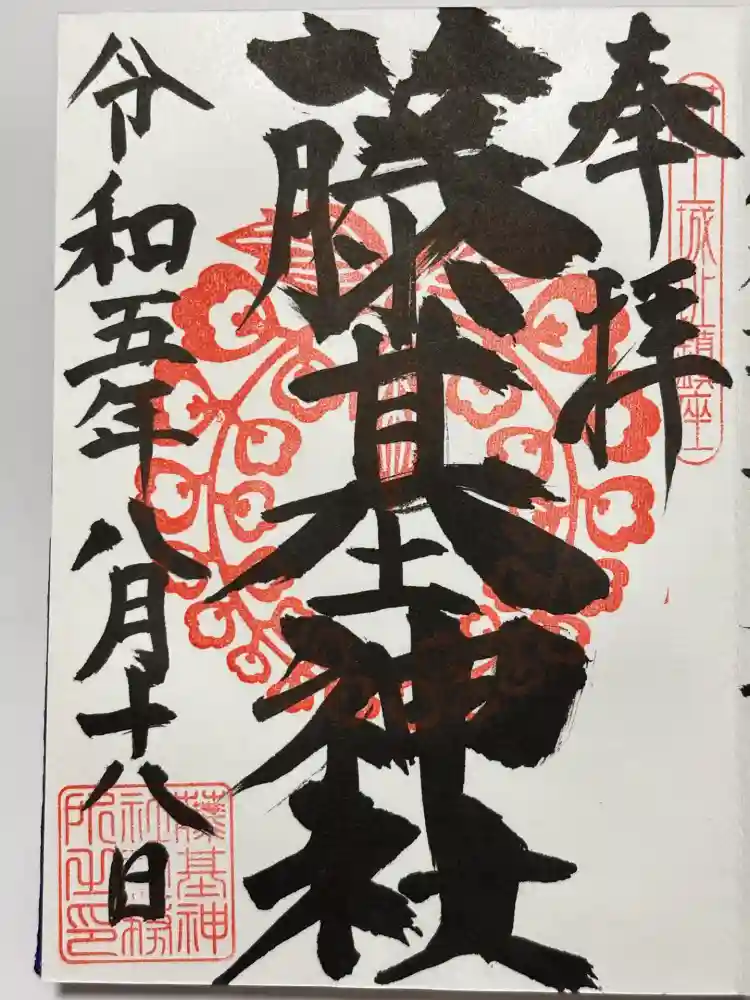 奉拝
村上城址鎮座
藤基神社
令和五年八月十八日
藤基神
社社務
所之印